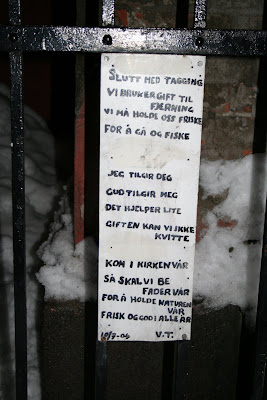 SLUTT MED TAGGING
VI BRUKER GIFT TIL
FJERNING
VI MÅ HOLDE OSS FRISKE
FOR Å GÅ OG FISKE
JEG TILGIR DEG
GUD TILGIR MEG
DET HJELPER LITE
GIFTEN KAN VI IKKE
KVITTE
KOM I KIRKEN VÅR
SÅ SKAL VI BE
FADER VÅR
FOR Å HOLDE NATUREN
VÅR
FRISK OG GOD I ALLE ÅR
V.T.